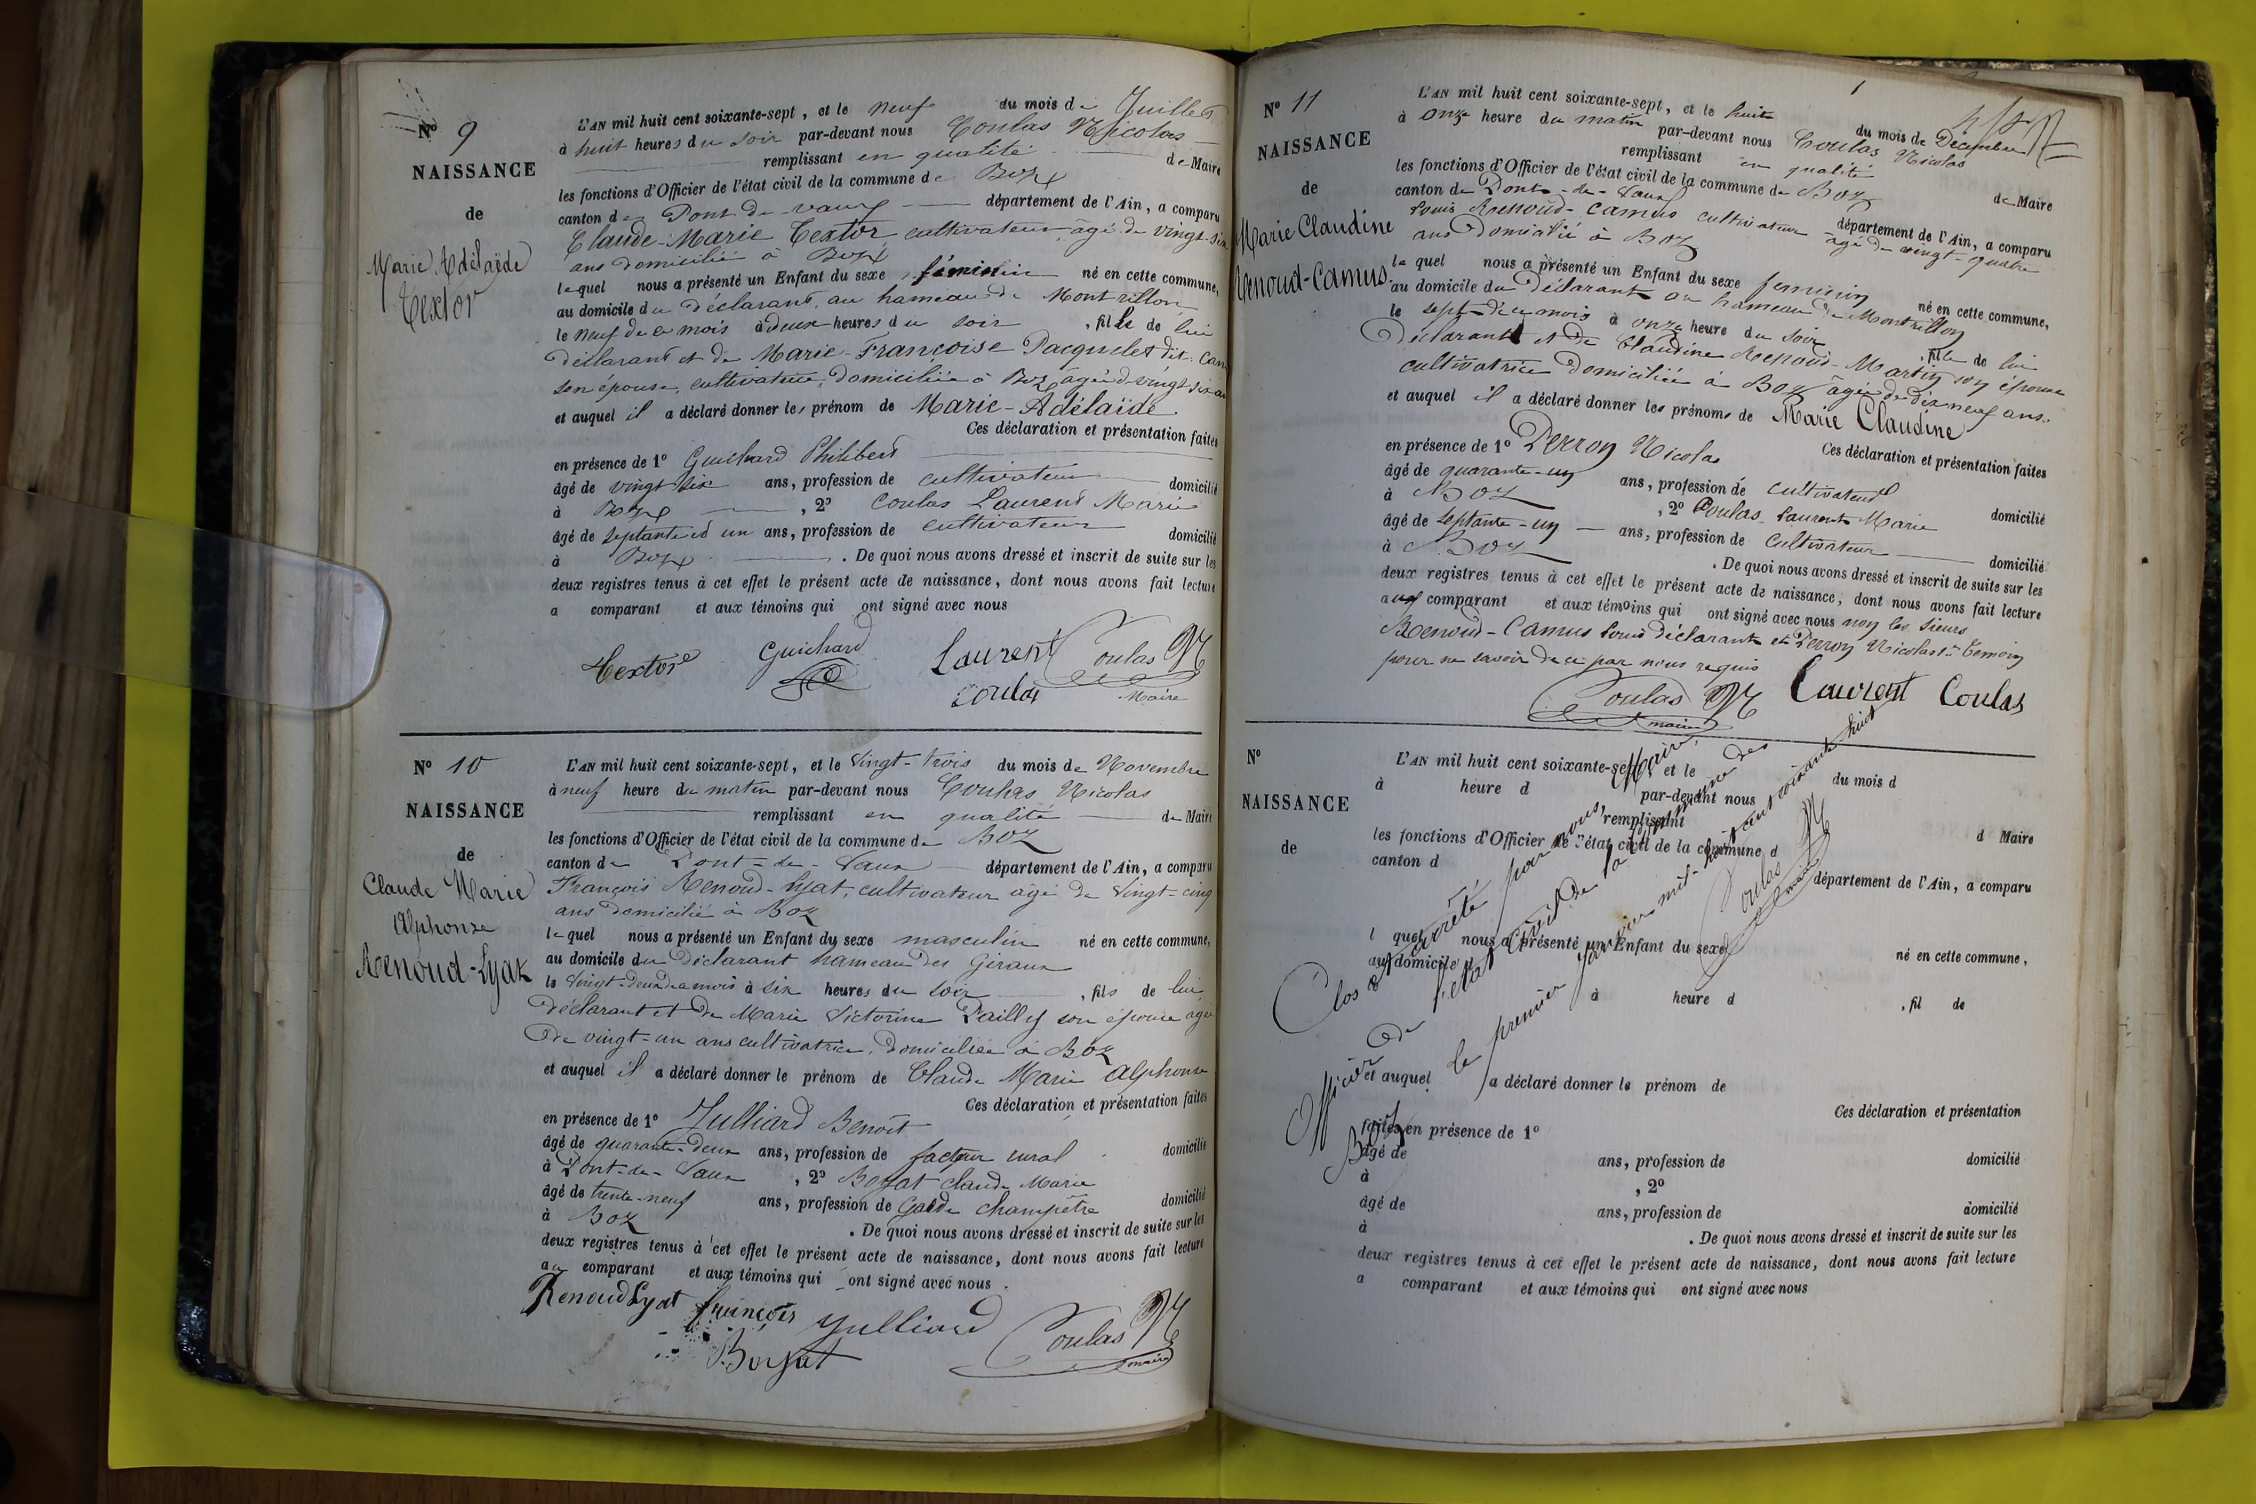 N° 9
NAISSANCE
de
Marie Adélaïde
Textor
L'AN mil huit cent soixante-sept, et le neuf du mois de Juillet
à huit heures du soir par-devant nous Coulas Nicolas
remplissant en qualité de Maire
les fonctions d'Officier de l'état civil de la commune de Boz
canton de Pont-de-vaux département de l'Ain, a comparu
Claude-Marie Textor, cultivateur, âgé de vingt-six
ans domicilié à Boz
lequel nous a présenté un Enfant du sexe féminin né en cette commune,
au domicile du déclarant, au hameau de Montrillon
le neuf de ce mois à deux heures du soir, fille de lui
déclarant et de Marie-Françoise Pacquelet dit
son épouse, cultivatrice, domiciliée à Boz, âgée de vingt-six
et auquel il a déclaré donner les prénom de Marie-Adélaïde.
Ces déclaration et présentation faites
en présence de 1° Guichard Philibert
âgé de vingt six ans, profession de cultivateur domicilié
à Boz, 2° Coulas Laurent Marie
âgé de septante et un ans, profession de cultivateur domicilié
à Boz. De quoi nous avons dressé et inscrit de suite sur les
deux registres tenus à cet effet le présent acte de naissance, dont nous avons fait lecture
a comparant et aux témoins qui ont signé avec nous
Textor Guichard Laurent Coulas N
coulas Maire
N° 10
NAISSANCE
de
Claude Marie
Alphonse
Renoud-Lyat
L'AN mil huit cent soixante-sept, et le vingt-trois du mois de Novembre
à neuf heure du matin par-devant nous Coulas Nicolas
remplissant en qualité de Maire
les fonctions d'Officier de l'état civil de la commune de Boz
canton de Pont-de-Vaux département de l'Ain, a comparu
François Renoud-Lyat, cultivateur âgé de vingt-cinq
ans domicilié à Boz
lequel nous a présenté un Enfant du sexe masculin né en cette commune,
au domicile du déclarant hameau des Giraux
le vingt-deux de ce mois à six heures du soir, fils de lui
déclarant et de Marie Victorine Pailly son épouse âgée
de vingt-un ans cultivatrice, domiciliée à Boz
et auquel il a déclaré donner le prénom de Claude Marie Alphonse
Ces déclaration et présentation faites
en présence de 1° Julliard Benoit
âgé de quarante-deux ans, profession de facteur rural domicilié
à Pont-de-Vaux, 2° Boyat Claude Marie
âgé de trente-neuf ans, profession de Garde champêtre domicilié
à Boz. De quoi nous avons dressé et inscrit de suite sur les
deux registres tenus à cet effet le présent acte de naissance, dont nous avons fait lecture
au comparant et aux témoins qui ont signé avec nous.
Renoud Lyat françois Julliard Coulas N
Boyat maire
N° 11
NAISSANCE
de
Marie Claudine
Renoud-Camus
L'AN mil huit cent soixante-sept, et le huit du mois de Décembre
à onze heure du matin par-devant nous Coulas Nicolas
remplissant en qualité de Maire
les fonctions d'Officier de l'état civil de la commune de Boz
canton de Pont-de-Vaux département de l'Ain, a comparu
Louis Renoud-Camus cultivateur âgé de vingt-quatre
ans domicilié à Boz
lequel nous a présenté un Enfant du sexe féminin né en cette commune,
au domicile du déclarant au hameau de Montrillon
le sept de ce mois à onze heure du soir, fille de lui
Déclarant et de Claudine Renoud-Martin son épouse
cultivatrice domiciliée à Boz âgée de dix neuf ans.
et auquel il a déclaré donner les prénoms de Marie Claudine
Ces déclaration et présentation faites
en présence de 1° Perron Nicolas
âgé de quarante-un ans, profession de cultivateur domicilié
à Boz, 2° Coulas Laurent Marie
âgé de septante-un ans, profession de cultivateur domicilié
à Boz. De quoi nous avons dressé et inscrit de suite sur les
deux registres tenus à cet effet le présent acte de naissance, dont nous avons fait lecture
aux comparant et aux témoins qui ont signé avec nous non les sieurs
Renoud-Camus Louis déclarant et Perron Nicolas 1er témoin
pour ne savoir de ce par nous requis
Coulas N Laurent Coulas
maire
N°
NAISSANCE
de
L'AN mil huit cent soixante-sept, et le du mois d
à heure d par-devant nous
remplissant d Maire
les fonctions d'Officier de l'état civil de la commune d
canton d département de l'Ain, a comparu
l quel nous a présenté un Enfant du sexe né en cette commune,
au domicile d
à heure d, fil de
et auquel a déclaré donner le prénom de
Ces déclaration et présentation
faites en présence de 1°
âgé de ans, profession de domicilié
à, 2°
âgé de ans, profession de domicilié
à. De quoi nous avons dressé et inscrit de suite sur les
deux registres tenus à cet effet le présent acte de naissance, dont nous avons fait lecture
a comparant et aux témoins qui ont signé avec nous
Clos et arrêté par nous, Maire,
Officier de l'état civil de la commune de
Boz le premier janvier mil-huit cent soixante-huit
Coulas N
maire